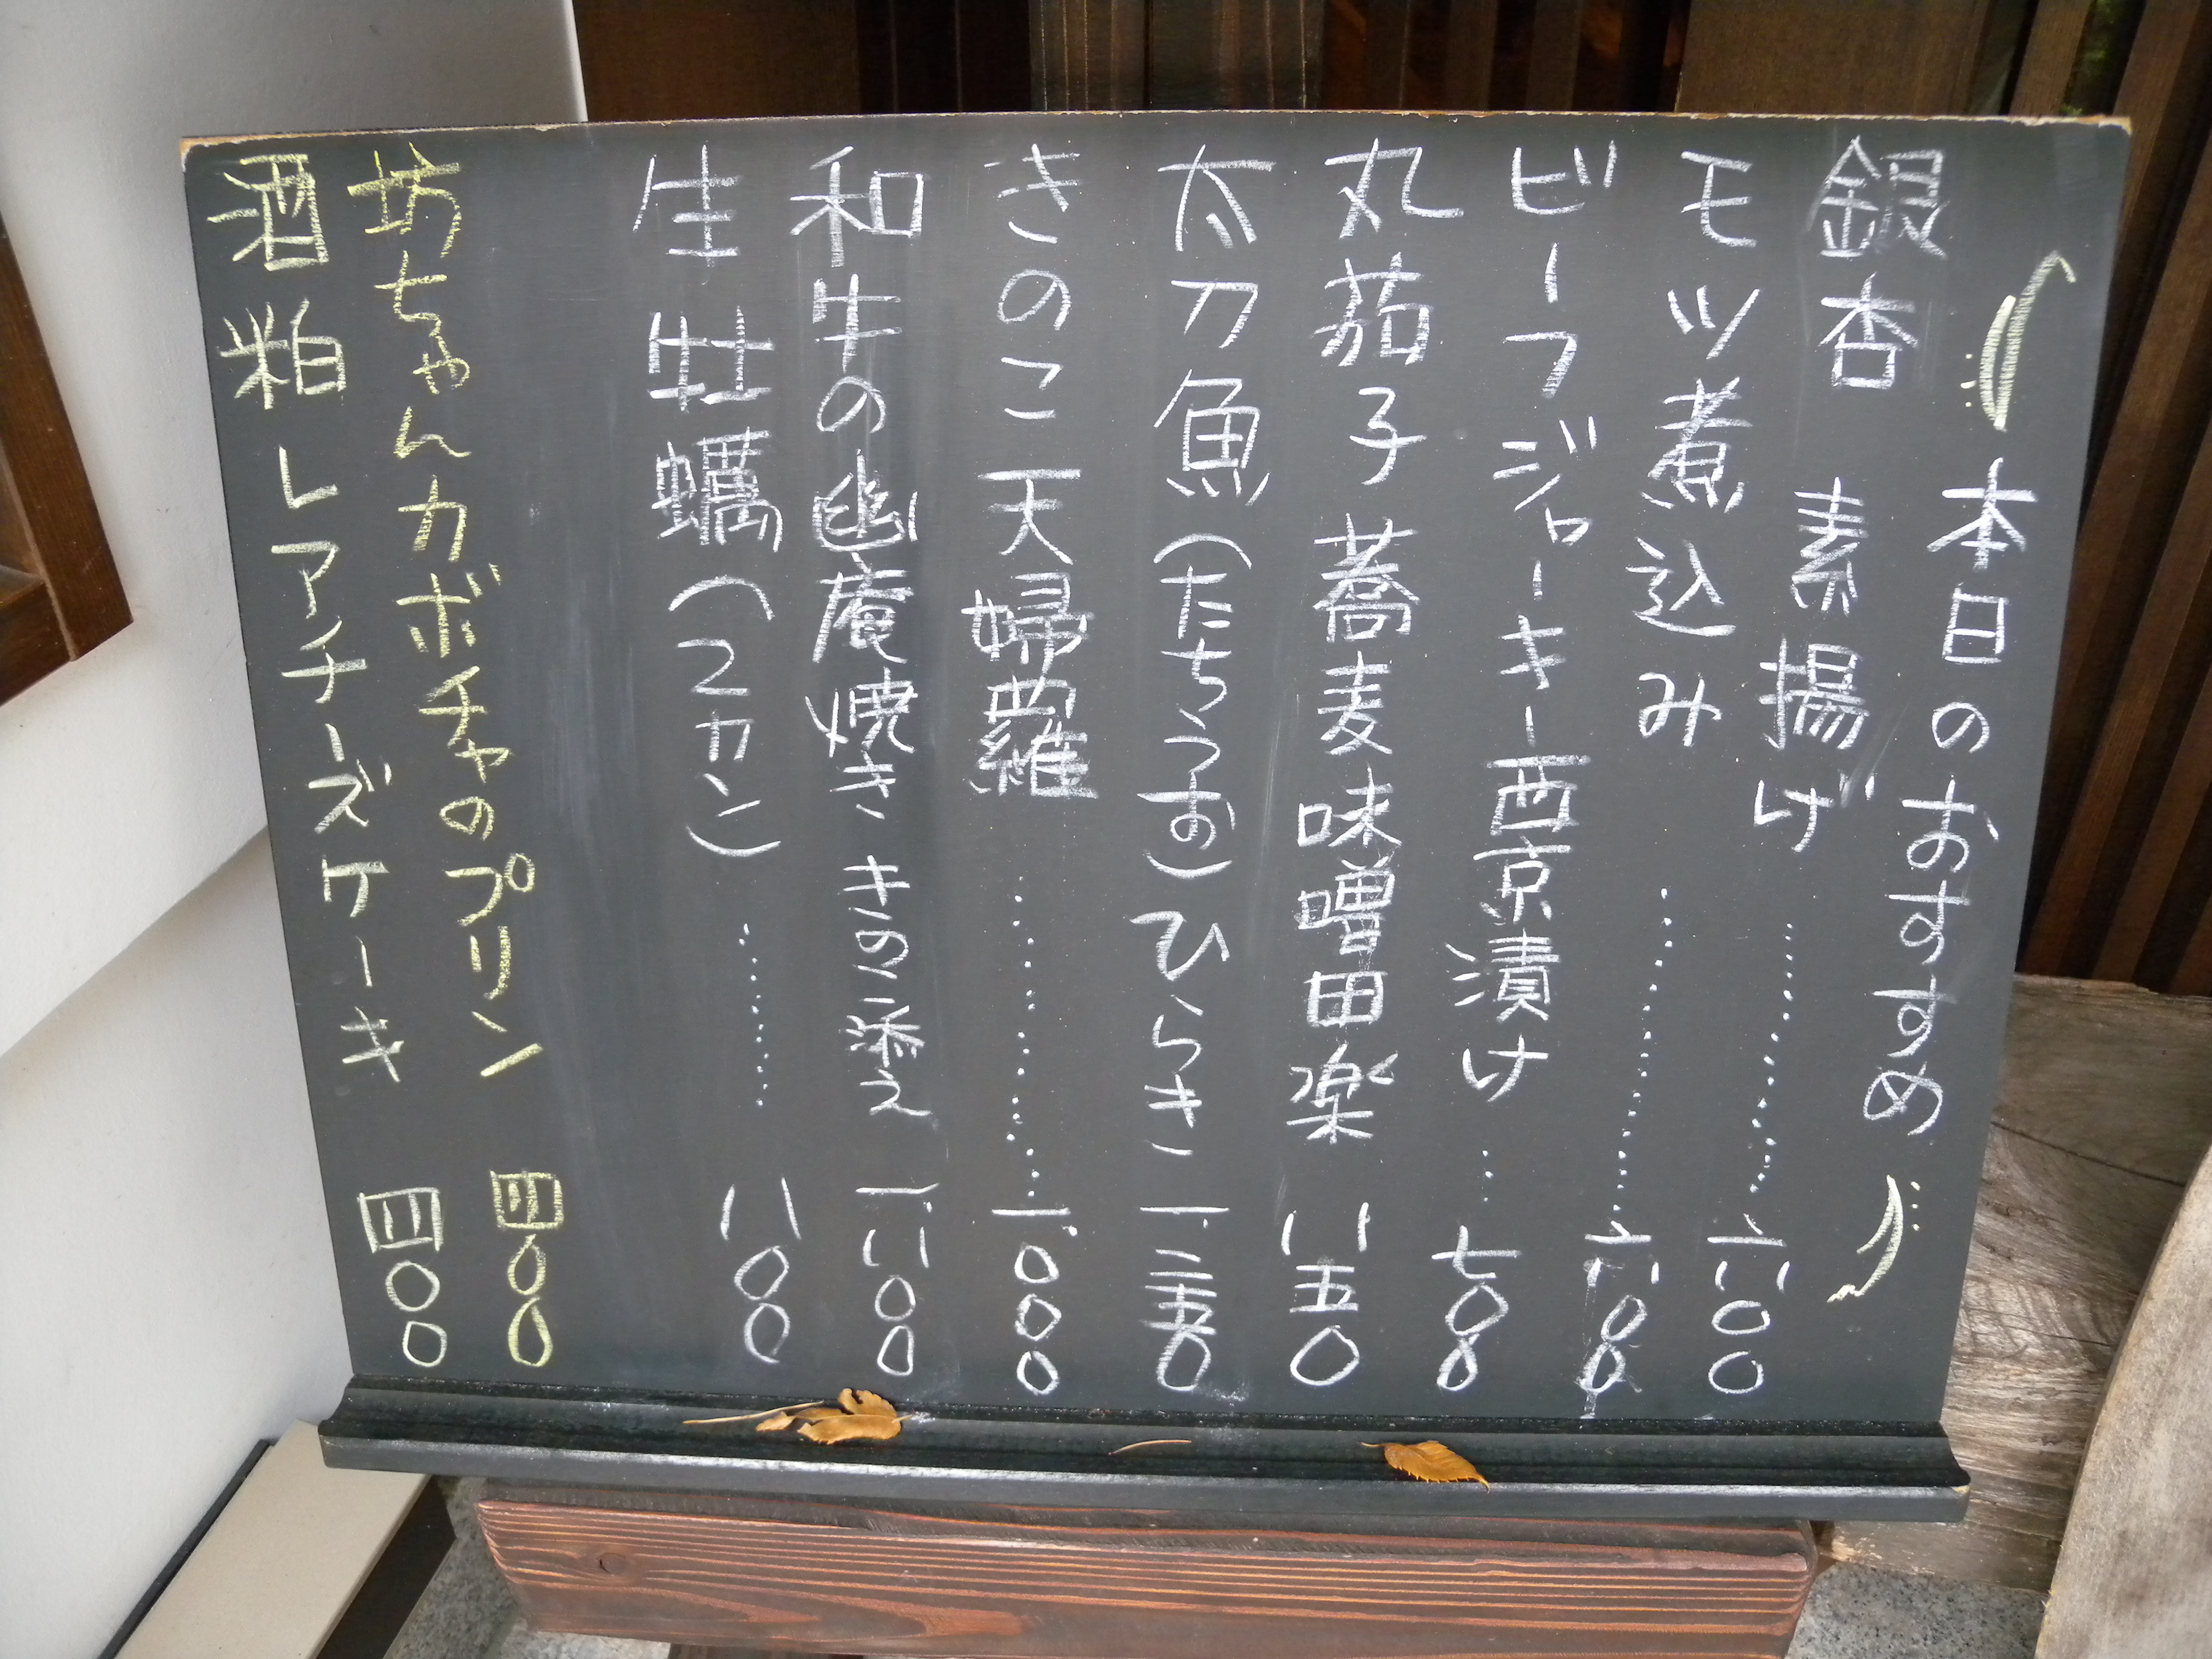 本日のおすすめ
銀杏 素揚げ………六〇〇
モツ煮込み………六八〇
ビーフジャーキー西京漬け…七〇〇
丸茄子 蕎麦味噌田楽 八五〇
太刀魚(たちうお)ひらき 一、二五〇
きのこ天婦羅………一、〇〇〇
和牛の幽庵焼き きのこ添え 一、八〇〇
生牡蠣(2カン)………八〇〇
坊ちゃんカボチャのプリン 四〇〇
酒粕レアチーズケーキ 四〇〇